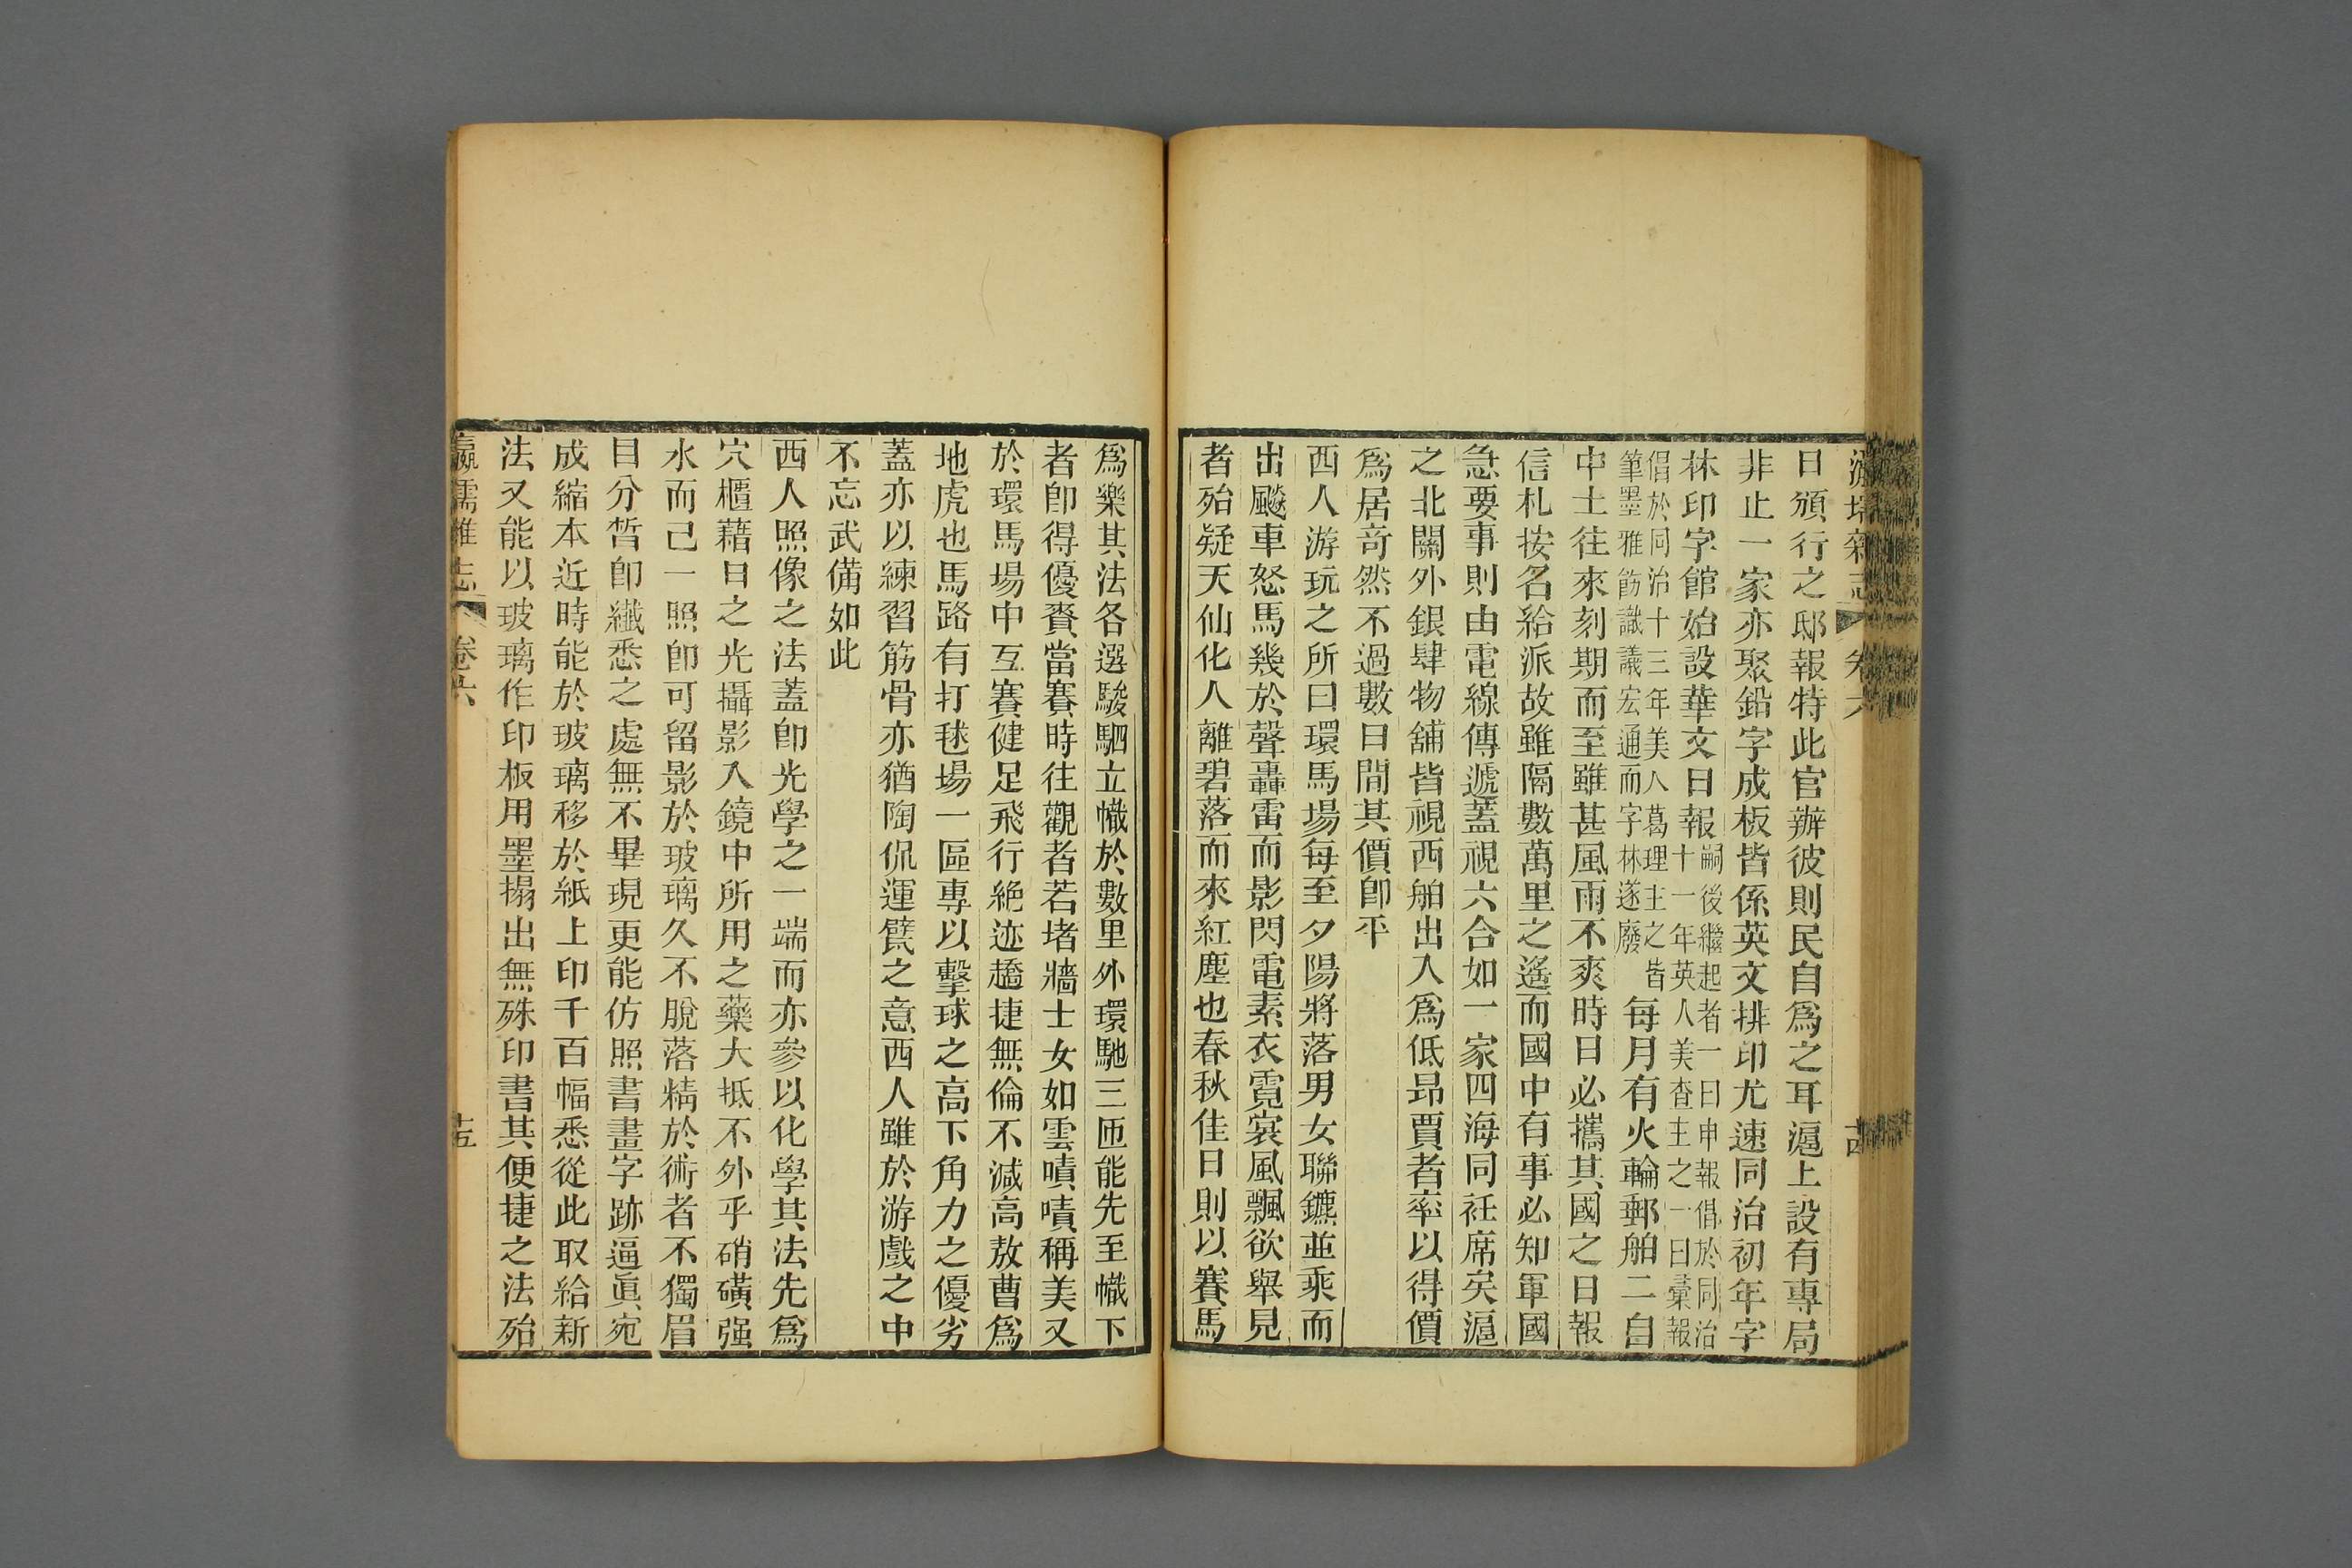 日頒行之邸報特此官辦彼則民自爲之耳滬上設有專局
非止一家亦聚鉛字成板皆係英文排印尤速同治初年字
林印字館始設華文日報嗣後繼起者一曰申報倡於同治
十一年英人美查主之一曰彙報
倡於同治十三年美人葛理主之皆
筆墨雅飭識議宏通而字林遂廢每月有火輪郵舶二自
中土往來刻期而至雖甚風雨不爽時日必攜其國之日報
信札按名給派故雖隔數萬里之遙而國中有事必知軍國
急要事則由電線傳遞蓋視六合如一家四海同衽席矣滬
之北關外銀肆物舖皆視西舶出入爲低昂賈者率以得價
爲居奇然不過數日間其價卽平
西人游玩之所曰環馬場每至夕陽將落男女聯鑣並乘而
出颷車怒馬幾於聲轟雷而影閃電素衣霓裳風飄欲舉見
者殆疑天仙化人離碧落而來紅塵也春秋佳日則以賽馬
爲樂其法各選駿駟立幟於數里外環馳三匝能先至幟下
者卽得優賚當賽時往觀者若堵牆士女如雲嘖嘖稱美又
於環馬場中互賽健足飛行絶迹趫捷無倫不減高敖曹爲
地虎也馬路有打毬場一區專以擊球之高下角力之優劣
蓋亦以練習筋骨亦猶陶侃運甓之意西人雖於游戲之中
不忘武備如此
西人照像之法蓋卽光學之一端而亦參以化學其法先爲
穴櫃藉日之光攝影入鏡中所用之藥大抵不外乎硝磺强
水而已一照卽可留影於玻璃久不脫落精於術者不獨眉
目分晳卽纖悉之處無不畢現更能仿照書畫字跡逼眞宛
成縮本近時能於玻璃移於紙上印千百幅悉從此取給新
法又能以玻璃作印板用墨搨出無殊印書其便捷之法殆
瀛壖雜志 卷六 十五